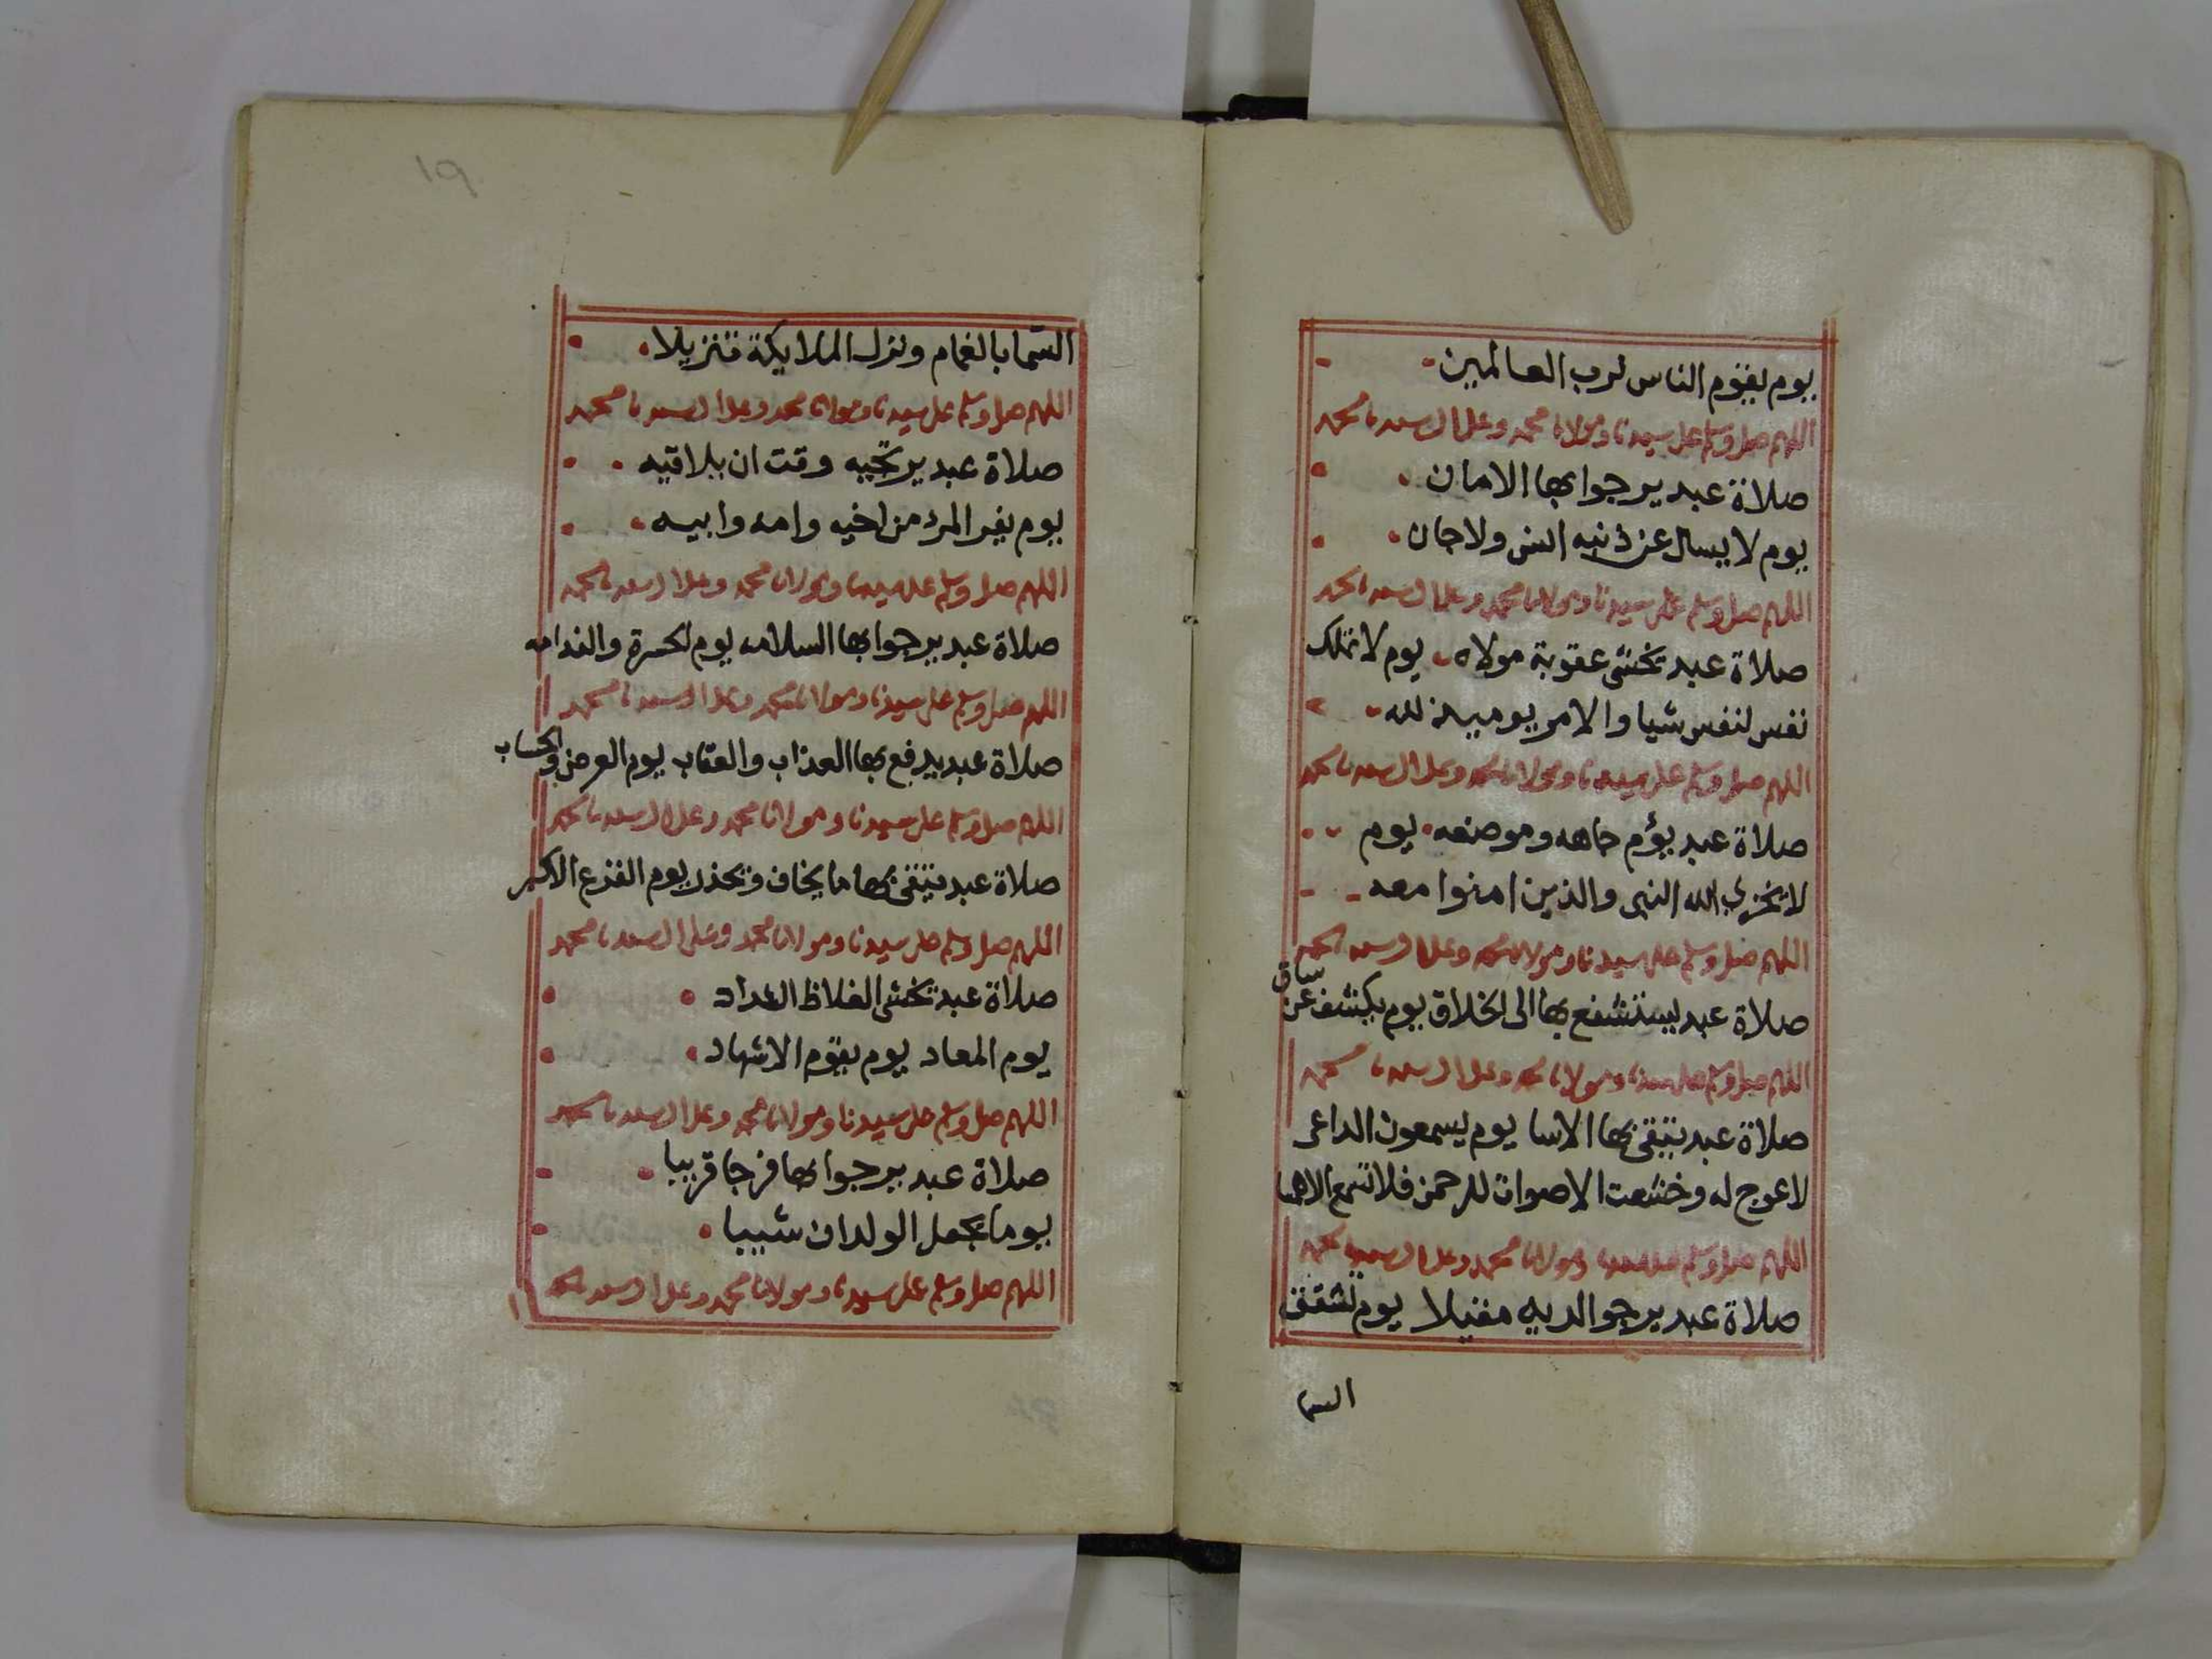 يوم يقوم الناس لرب العالمين
اللهم صل وسلم على سيدنا ومولانا محمد وعلى ال سيدنا محمد
صلاة عبد يرجوا بها الامان
يوم لا يسال عن ذنبه انس ولا جان
اللهم صل وسلم على سيدنا ومولانا محمد وعلى ال سيدنا محمد
صلاة عبد يخشى عقوبة مولاه يوم لا تملك
نفس لنفس شيا والامر يوميذ لله
اللهم صل وسلم على سيدنا ومولانا محمد وعلى ال سيدنا محمد
صلاة عبد يؤم جاهه وموضعه يوم
لا يخزي الله النبي والذين امنوا معه
اللهم صل وسلم على سيدنا ومولانا محمد وعلى ال سيدنا محمد
صلاة عبد يستشفع بها الى الخلاق يوم يكشف عن ساق
اللهم صل وسلم على سيدنا ومولانا محمد وعلى ال سيدنا محمد
صلاة عبد يتقى بها الاسا يوم يسمعون الداعى
لا عوج له وخشعت الاصوات للرحمن فلا تسمع الا همسا
اللهم صل وسلم على سيدنا ومولانا محمد وعلى ال سيدنا محمد
صلاة عبد يرجو لديه مقيلا يوم تشقق
السما
١٩
السما بالغمام ونزل الملايكة تنزيلا
اللهم صل وسلم على سيدنا ومولانا محمد وعلى ال سيدنا محمد
صلاة عبد يرتجيه وقت ان يلاقيه
يوم يفر المرء من اخيه وامه وابيه
اللهم صل وسلم على سيدنا ومولانا محمد وعلى ال سيدنا محمد
صلاة عبد يرجوا بها السلامه يوم الحسرة والندامه
اللهم صل وسلم على سيدنا ومولانا محمد وعلى ال سيدنا محمد
صلاة عبد يدفع بها العذاب والعقاب يوم العرض والحساب
اللهم صل وسلم على سيدنا ومولانا محمد وعلى ال سيدنا محمد
صلاة عبد يتقى بها ما يخاف ويحذر يوم الفزع الاكبر
اللهم صل وسلم على سيدنا ومولانا محمد وعلى ال سيدنا محمد
صلاة عبد يخشى الغلاظ الشداد
يوم المعاد يوم يقوم الاشهاد
اللهم صل وسلم على سيدنا ومولانا محمد وعلى ال سيدنا محمد
صلاة عبد يرجوا بها فرجا قريبا
يوما يجعل الولدان شيبا
اللهم صل وسلم على سيدنا ومولانا محمد وعلى ال سيدنا محمد